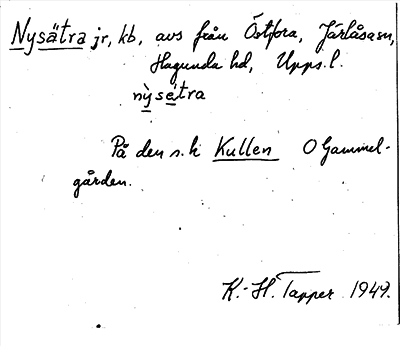 Nysätra jr, kb, avs från Östfora, Järlåsasn,
Hagunda hd, Upps. l.
nỳsétra
På den s.k Kullen O Gammel-
gården.
K.-H. Tapper 1949.